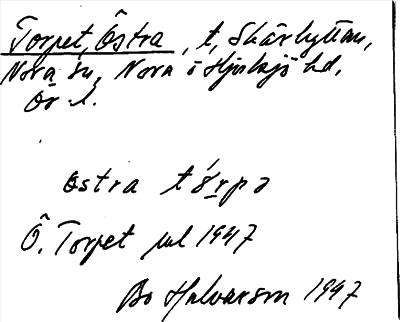 Torpet, Östra, t, Skärhyttan,
Nora sn, Nora o Hjulsjö hd,
Ör l.
östra tórpə
Ö. Torpet 1947
Bo Halvarson 1947